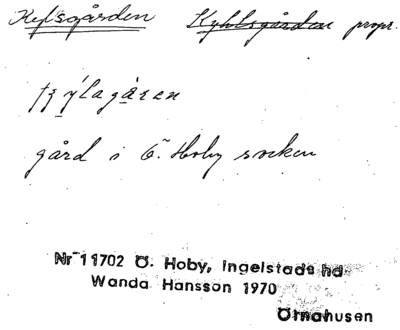 Kylsgården Kyhlsgården propr.
tʒýlagàren
gård i Ö. Hoby socken
Nr 11702 Ö. Hoby, Ingelstads hd
Wanda Hansson 1970
Örnahusen